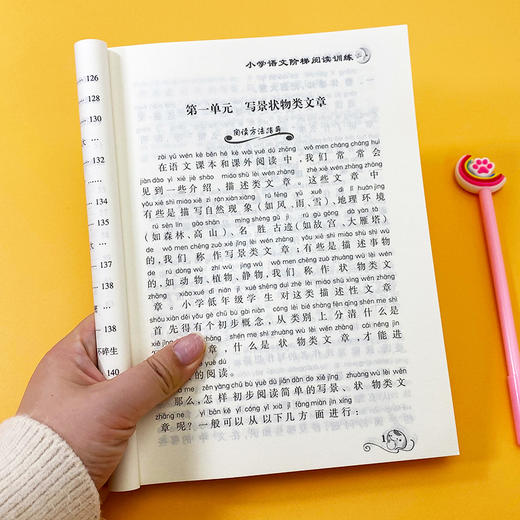 126
128
130
138
坏碎生
140
小学语文阶梯阅读训练
第一单元 写景状物类文章
阅读方法指导
zài yǔ wén kè běn hé kè wài yuè dú zhōng wǒ men cháng cháng huì
在语文课本和课外阅读中,我们常常会
jiàn dào yì xiē jiè shào miáo shù lèi wén zhāng zhè xiē wén zhāng zhōng
见到一些介绍、描述类文章。这些文章中
yǒu xiē shì miáo xiě zì rán xiàn xiàng rú fēng yǔ xuě dì lǐ huán jìng
有些是描写自然现象(如风、雨、雪)、地理环境
rú sēn lín gāo shān míng shèng gǔ jì rú gù gōng dà yàn tǎ
(如森林、高山)、名胜古迹(如故宫、大雁塔)
de wǒ men chēng zuò xiě jǐng lèi wén zhāng yǒu xiē shì miáo shù shì wù
的,我们称作写景类文章;有些是描述事物
de rú dòng wù zhí wù jìng wù wǒ men chēng zuò zhuàng wù lèi wén
的,如动物、植物、静物,我们称作状物类文
zhāng xiǎo xué dī nián jí xué shēng duì zhè lèi miáo shù xìng wén zhāng
章。小学低年级学生对这类描述性文章
shǒu xiān děi yǒu gè chū bù gài niàn cóng lèi bié shàng fēn qīng shén me shì
首先得有个初步概念,从类别上分清什么是
xiě jǐng shén me shì zhuàng wù lèi wén zhāng cái néng jìn
写 章,什么是状物类文章,才能进
yuè dú
的阅读。
nà me zěn yàng chū bù yuè dú jiǎn dān de xiě jǐng zhuàng wù lèi wén
那么,怎样初步阅读简单的写景、状物类文
zhāng ne yì bān kě yǐ cóng yǐ xià jǐ fāng miàn jìn xíng
章呢?一般可以从以下几方面进行:
1